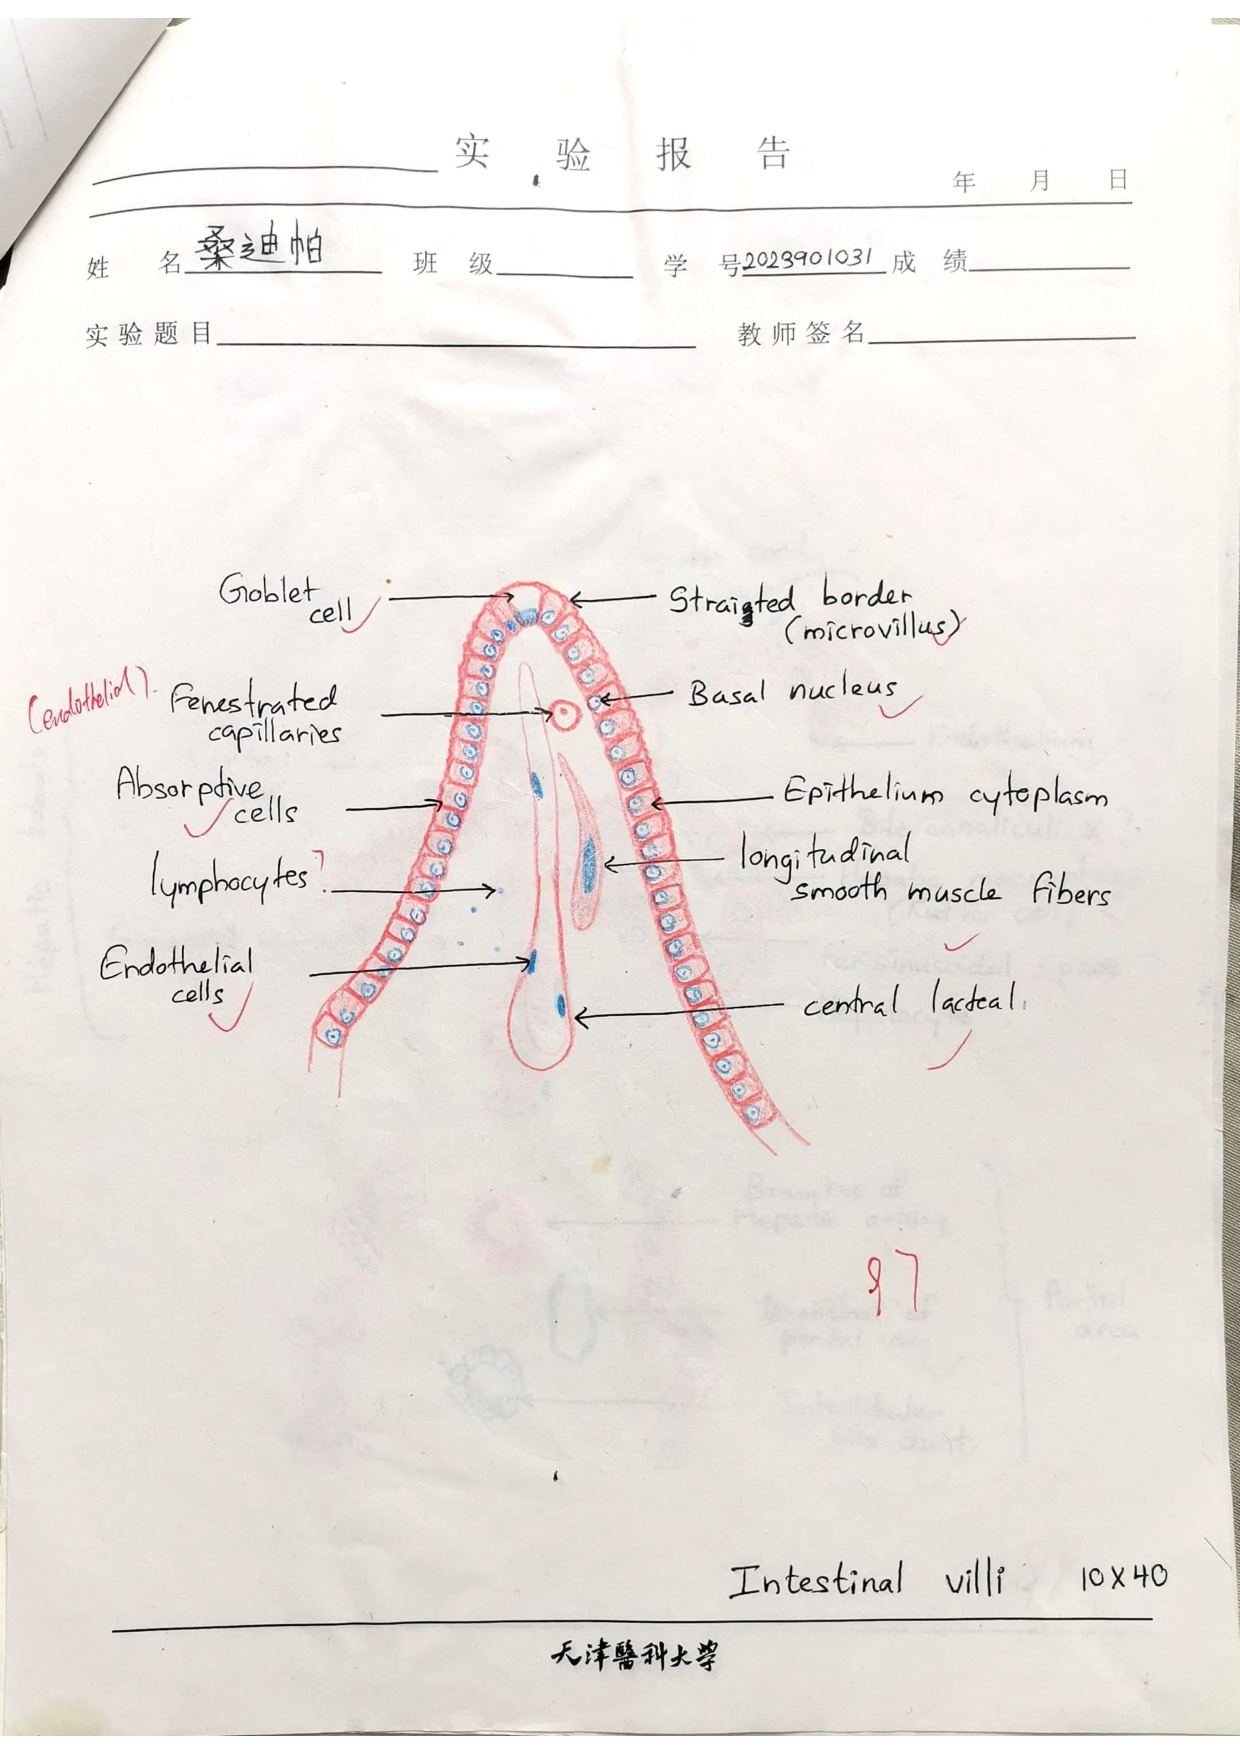 实 验 报 告
年 月 日
姓 名 桑迪帕 班 级 学 号 2023901031 成 绩
实验题目 教师签名
Goblet
cell
Straigted border
(microvillus)
(endothelial).
Fenestrated
capillaries
Basal nucleus
Absorptive
cells
Epithelium cytoplasm
lymphocytes ?
longitudinal
smooth muscle fibers
Endothelial
cells
central lacteal
Endothelium
Bile canaliculi x ?
Branches of
Hepatic artery
Portal
area
97
Intestinal villi 10X40
天津醫科大学